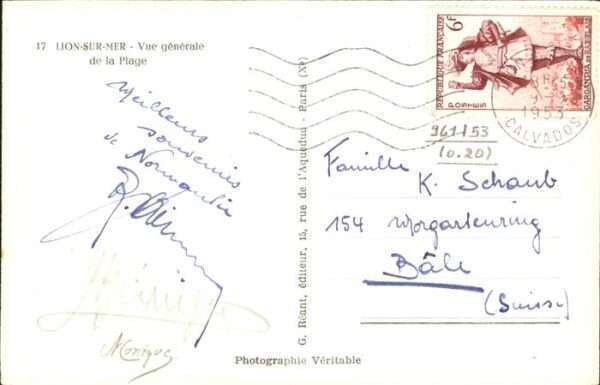 17 LION-SUR-MER - Vue générale
de la Plage
Meilleurs
souvenirs
de Normandie
Monique
G. Réant, éditeur, 15, rue de l'Aqueduc - Paris (Xe)
Photographie Véritable
6F
REPUBLIQUE FRANÇAISE
POSTES
GARGANTUA
1953
CALVADOS
961153
(0.20)
Famille
K. Schaub
154 Morgartenring
Bâle
(Suisse)